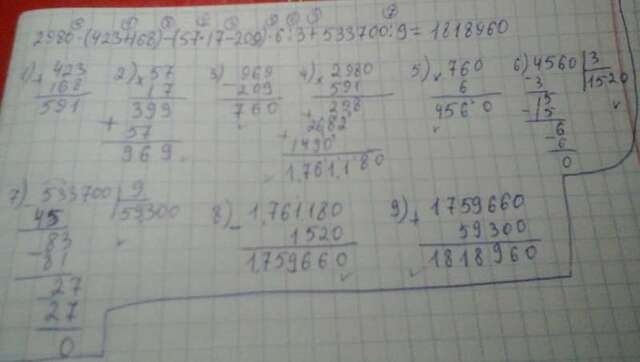 2980·(423+168)-(57·17-209)·6:3+533700:9=1818960
1) + 423
168
591
2) × 57
17
399
+ 57
969
3) - 969
209
760
4) × 2980
591
+ 298
+ 2682
1490
1,761,180
5) × 760
6
4560
6) 4560 3
- 3 1520
15
- 15
6
- 6
0
7) - 533700 9
45 59300
- 83
81
- 27
27
0
8) - 1,761180
1520
1759660
9) + 1759660
59300
1818960